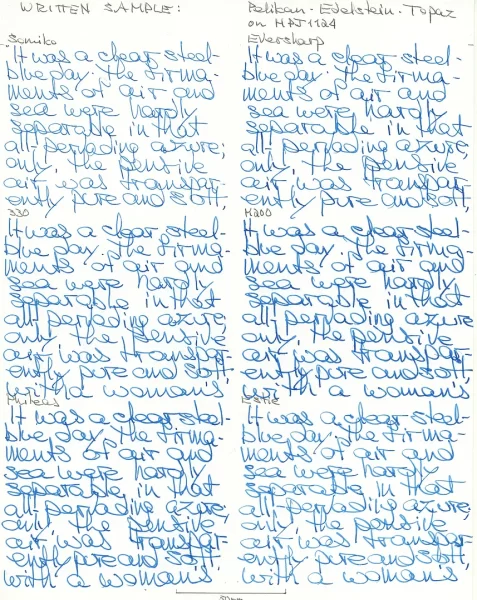 WRITTEN SAMPLE:
Pelikan - Edelstein - Topaz
on MPJ1124
Semiko
It was a clear steel-
blue day. The firma-
ments of air and
sea were hardly
separable in that
all-pervading azure;
only, the pensive
air was transpar-
ently pure and soft,
Eversharp
It was a clear steel-
blue day. The firma-
ments of air and
sea were hardly
separable in that
all-pervading azure;
only, the pensive
air was transpar-
ently pure and soft,
330
It was a clear steel-
blue day. The firma-
ments of air and
sea were hardly
separable in that
all-pervading azure;
only, the pensive
air was transpar-
ently pure and soft,
with a woman's
M200
It was a clear steel-
blue day. The firma-
ments of air and
sea were hardly
separable in that
all-pervading azure;
only, the pensive
air was transpar-
ently pure and soft,
with a woman's
It was a clear steel-
blue day. The firma-
ments of air and
sea were hardly
separable in that
all-pervading azure;
only, the pensive
air was transpar-
ently pure and soft,
with a woman's
Estie
It was a clear steel-
blue day. The firma-
ments of air and
sea were hardly
separable in that
all-pervading azure;
only, the pensive
air was transpar-
ently pure and soft,
with a woman's
50mm